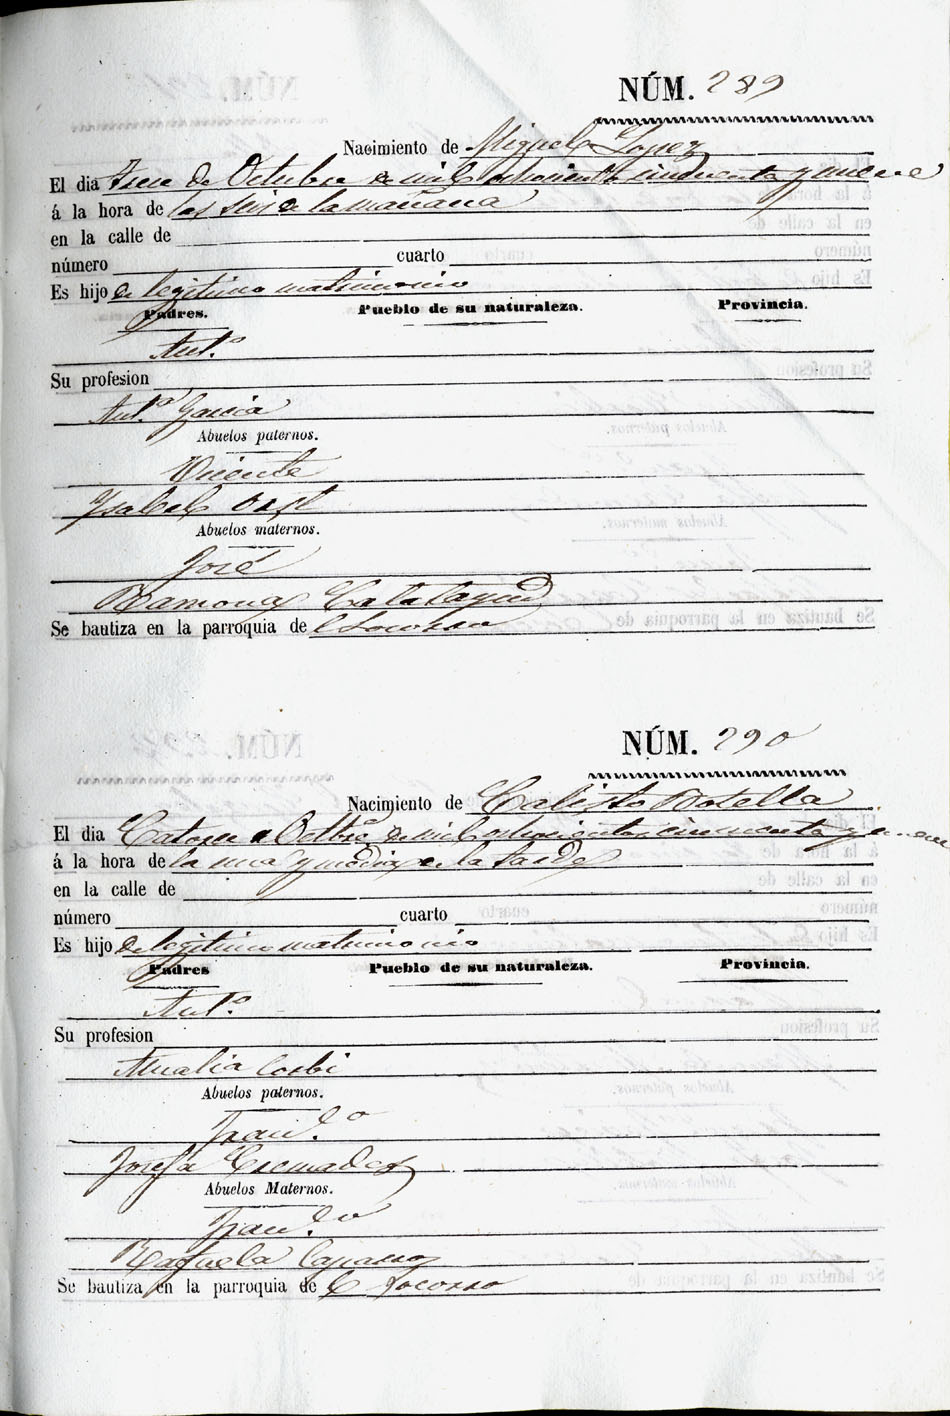 NÚM. 289
Nacimiento de Miguel Lopez
El dia Trece de Octubre de mil ochocientos cincuenta y nueve
á la hora de las seis de la mañana
en la calle de
número cuarto
Es hijo de legitimo matrimonio
Padres. Pueblo de su naturaleza. Provincia.
Antº
Su profesion
Antª Garcia
Abuelos paternos.
Vicente
Ysabel
Abuelos maternos.
José
Ramona Calatayud
Se bautiza en la parroquia de el Socorro
NÚM. 290
Nacimiento de Calisto Botella
El dia Catorce de Octbre de mil ochocientos cincuenta y nueve
á la hora de la una y media de la tarde
en la calle de
número cuarto
Es hijo de legitimo matrimonio
Padres Pueblo de su naturaleza. Provincia.
Antº
Su profesion
Amalia Corbi
Abuelos paternos.
Franco
Josefa Cremades
Abuelos Maternos.
Franco
Rafaela
Se bautiza en la parroquia de el Socorro